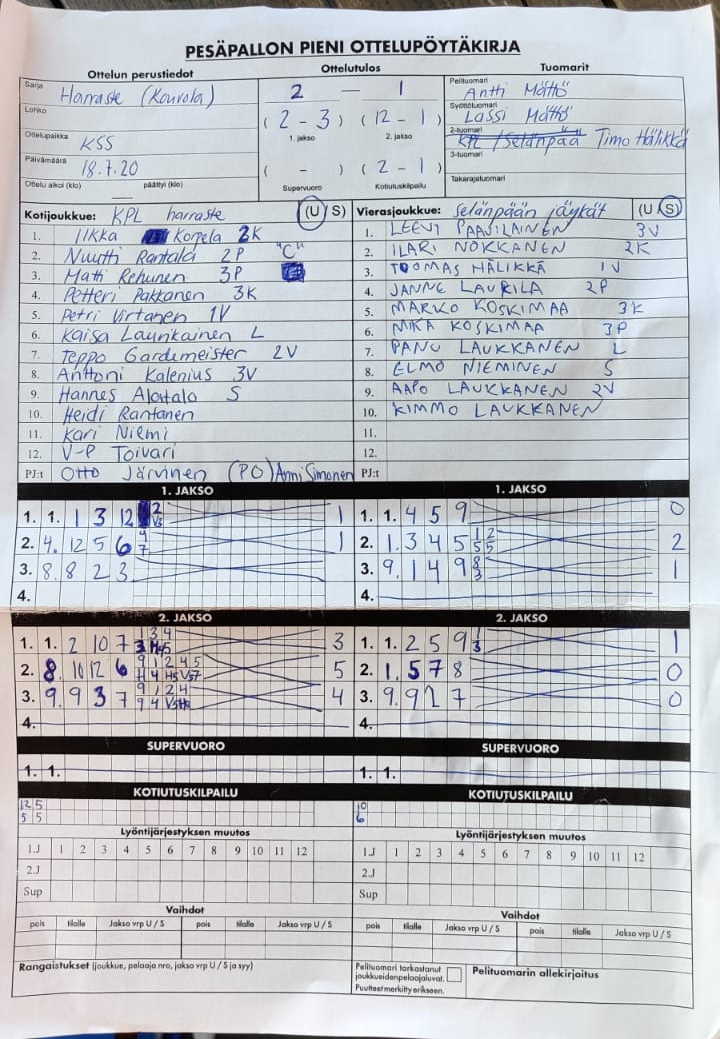 PESÄPALLON PIENI OTTELUPÖYTÄKIRJA
Ottelun perustiedot Ottelutulos Tuomarit
Sarja Harraste (Kouvola) 2 — 1 Pelituomari Antti Mättö
Lohko (2 - 3) (12 - 1) Syöttötuomari Lassi Mättö
1. jakso 2. jakso
Ottelupaikka KSS 2-tuomari Timo Hälikkä
Päivämäärä 18.7.20 ( - ) (2 - 1) 3-tuomari
Ottelu alkoi (klo) päättyi (klo) Supervuoro Kotiutuskilpailu Takarajatuomari
Kotijoukkue: KPL harraste (U S) Vierasjoukkue: Selänpään jäykät (U S)
1. Ilkka Korpela 2K 1. LEEVI PAASILAINEN 3V
2. Nuutti Rantala 2P "C" 2. ILARI NOKKANEN 2K
3. Matti Rehunen 3P 3. TUOMAS HÄLIKKÄ 1V
4. Petteri Pakkanen 3K 4. JANNE LAURILA 2P
5. Petri Virtanen 1V 5. MARKO KOSKIMAA 3K
6. Kaisa Launkainen L 6. MIKA KOSKIMAA 3P
7. Teppo Gardemeister 2V 7. PANU LAUKKANEN L
8. Anttoni Kalenius 3V 8. ELMO NIEMINEN S
9. Hannes Alatalo S 9. AAPO LAUKKANEN 2V
10. Heidi Rantanen 10. KIMMO LAUKKANEN
11. Kari Niemi 11.
12. V-P Toivari 12.
PJ:t Otto Järvinen (PO) Anni Simonen PJ:t
1. JAKSO 1. JAKSO
1. 1. 1 3 12 1 1. 1. 4 5 9 0
2. 4. 12 5 6 4 7 1 2. 1. 3 4 5 1 2 5 5 2
3. 8. 8 2 3 3. 9. 1 4 9 8 3 1
4. 4.
2. JAKSO 2. JAKSO
1. 1. 2 10 7 1 3 4 3 1. 1. 2 5 9 1 3 1
2. 8. 10 12 6 9 1 2 4 5 5 2. 1. 5 7 8 0
3. 9. 9 3 7 9 1 2 4 4 3. 9. 9 2 7 0
4. 4.
SUPERVUORO SUPERVUORO
1. 1. 1. 1.
KOTIUTUSKILPAILU KOTIUTUSKILPAILU
12 5 10
5 5 6
Lyöntijärjestyksen muutos Lyöntijärjestyksen muutos
1.J 1 2 3 4 5 6 7 8 9 10 11 12 1.J 1 2 3 4 5 6 7 8 9 10 11 12
2.J 2.J
Sup Sup
Vaihdot Vaihdot
pois tilalle Jakso vrp U / S pois tilalle Jakso vrp U / S pois tilalle Jakso vrp U / S pois tilalle Jakso vrp U / S
Rangaistukset (joukkue, pelaaja nro, jakso vrp U / S ja syy) Pelituomari tarkastanut joukkueiden pelaajaluvat. Puutteet merkitty erikseen. Pelituomarin allekirjoitus